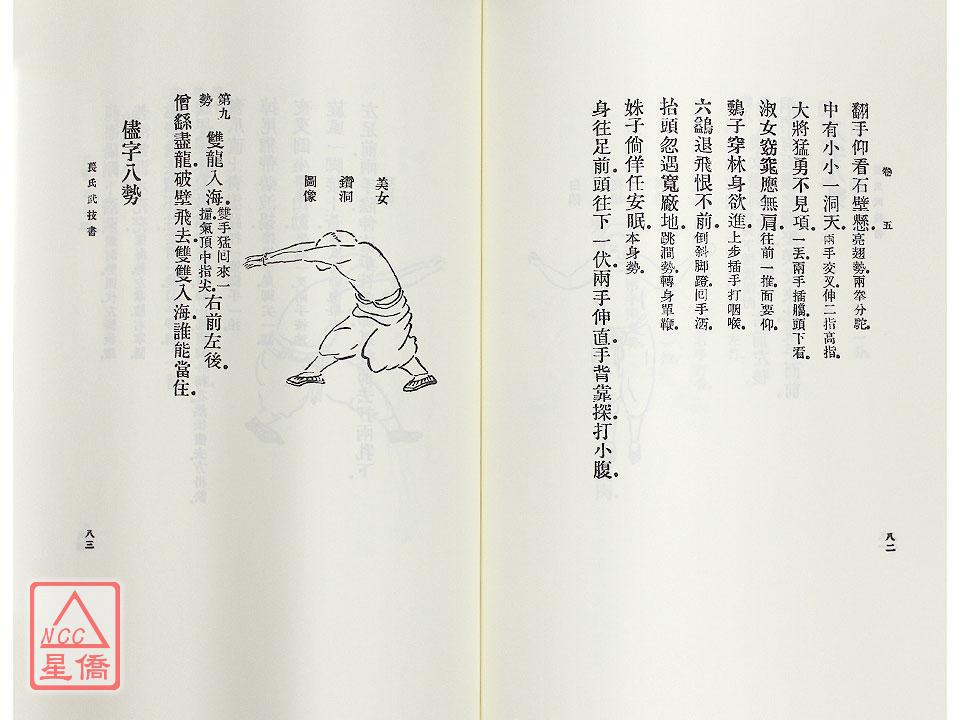 卷五
翻手仰看石壁懸。亮翅勢兩拳分駝。
中有小小一洞天。兩手交叉伸二指高指。
大將猛勇不見項。一丟兩手插臁頭下看。
淑女窈窕應無肩。往前一推面要仰。
鷂子穿林身欲進。上步插手打咽喉。
六鷁退飛恨不前。倒斜脚蹬回手洒。
抬頭忽遇寬廠地。跳澗勢轉身單鞭。
姝子倘佯任安眠。本身勢。
身往足前。頭往下一伏。兩手伸直。手背靠探打小腹。
八二
美女
鑽洞
圖像
第九勢 雙龍入海。雙手猛回來一擂。氣頂中指尖。右前左後。
僧繇盡龍。破壁飛去。雙雙入海。誰能當住。
儘字八勢
萇氏武技書
八三
NCC
星僑